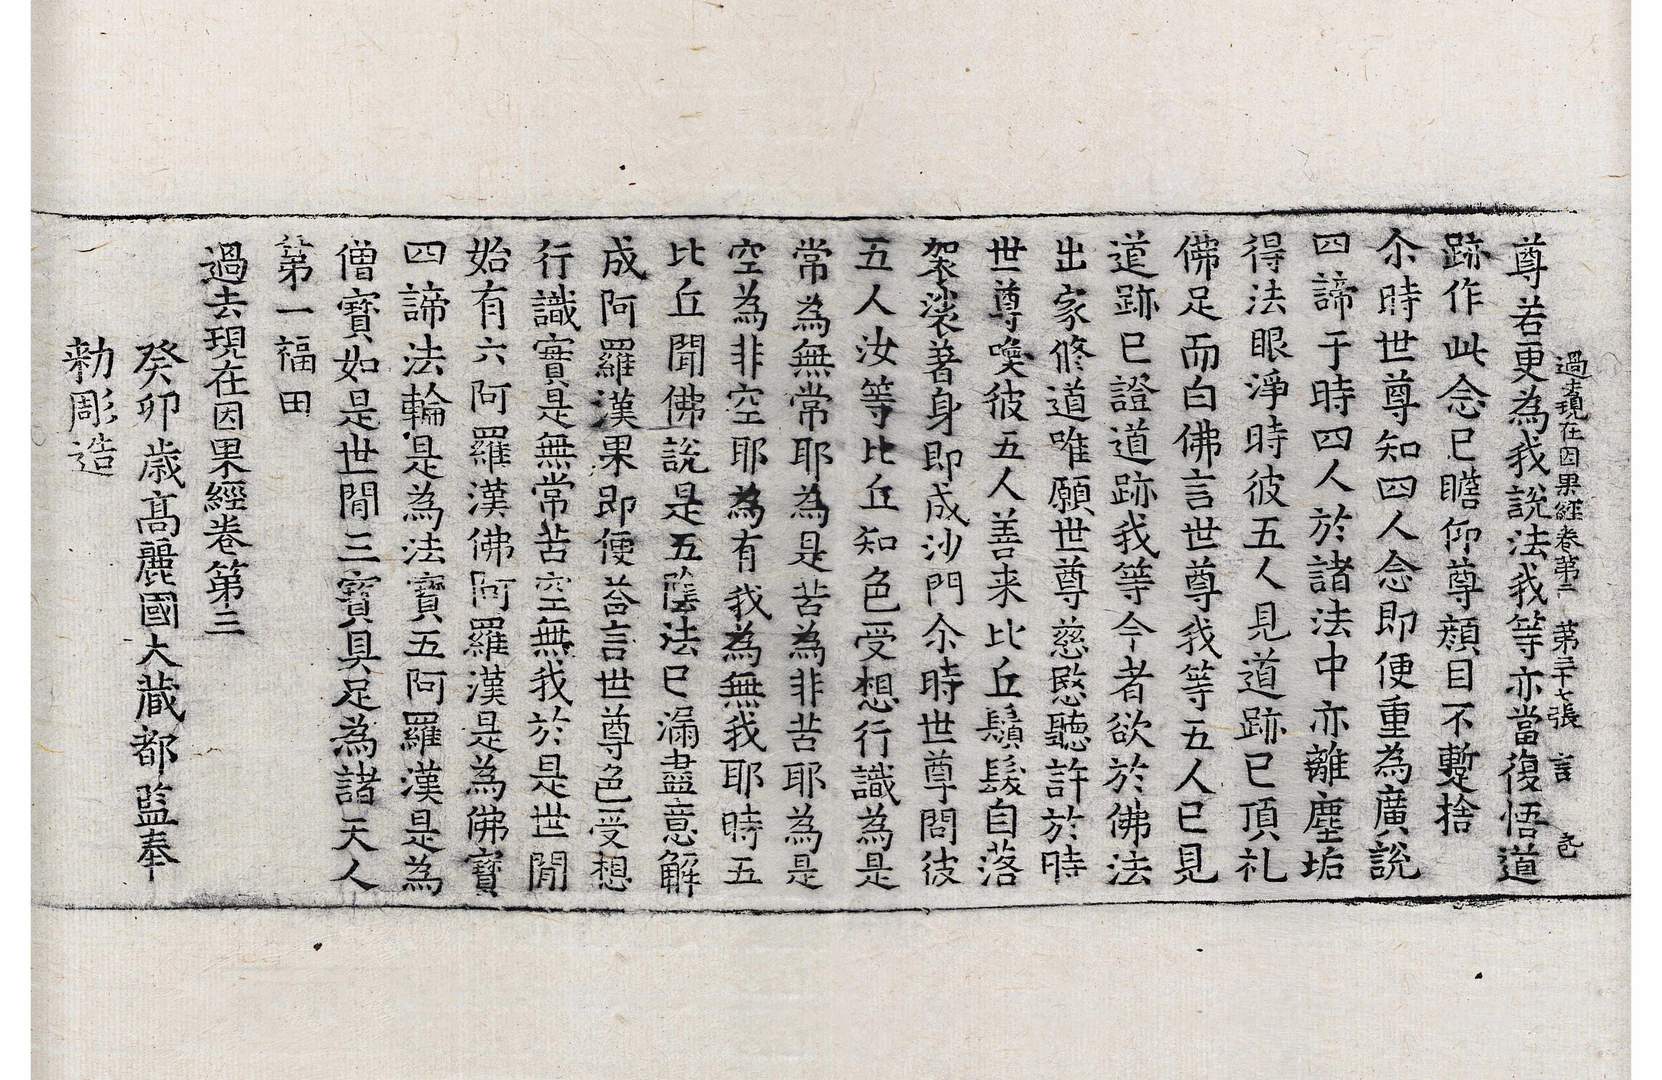 過去現在因果經卷第三 第三十七張 言
尊若更為我說法我等亦當復悟道
跡作此念已瞻仰尊顏目不蹔捨
尒時世尊知四人念即便重為廣說
四諦于時四人於諸法中亦離塵垢
得法眼淨時彼五人見道跡已頂礼
佛足而白佛言世尊我等五人已見
道跡已證道跡我等今者欲於佛法
出家修道唯願世尊慈愍聽許於時
世尊喚彼五人善来比丘鬚髮自落
袈裟著身即成沙門尒時世尊問彼
五人汝等比丘知色受想行識為是
常為無常耶為是苦為非苦耶為是
空為非空耶為有我為無我耶時五
比丘聞佛說是五陰法已漏盡意解
成阿羅漢果即便荅言世尊色受想
行識實是無常苦空無我於是世閒
始有六阿羅漢佛阿羅漢是為佛寶
四諦法輪是為法寶五阿羅漢是為
僧寶如是世閒三寶具足為諸天人
第一福田
過去現在因果經卷第三
癸卯歲高麗國大藏都監奉
勑彫造